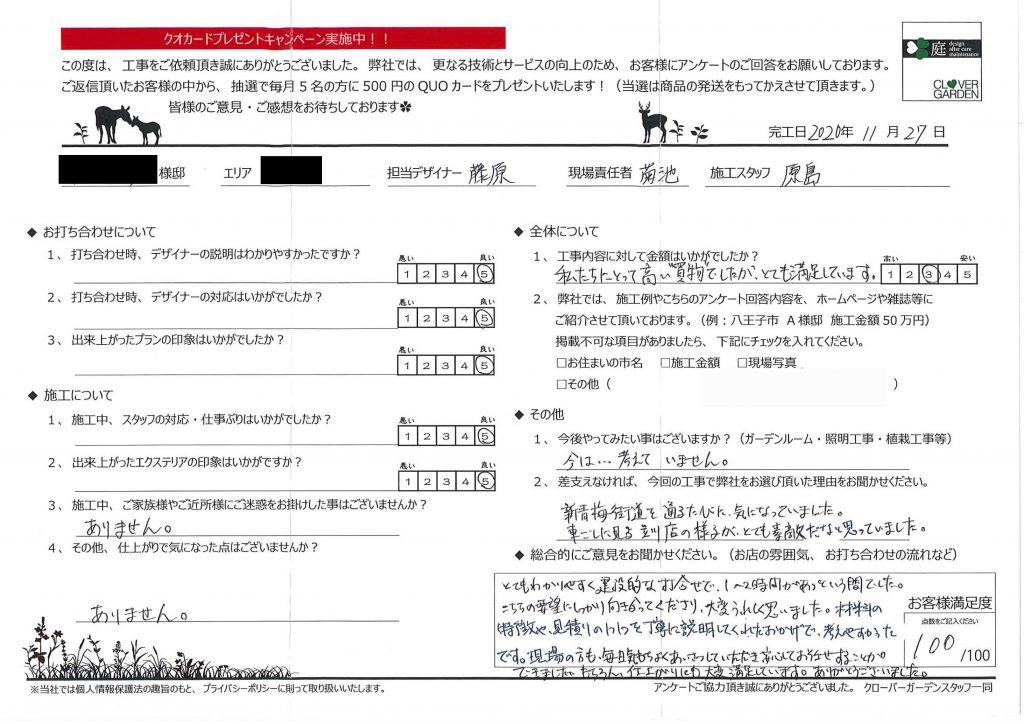 クオカードプレゼントキャンペーン実施中！！
庭 design after care maintenance
CLOVER GARDEN
この度は、工事をご依頼頂き誠にありがとうございました。弊社では、更なる技術とサービスの向上のため、お客様にアンケートのご回答をお願いしております。
ご返信頂いたお客様の中から、抽選で毎月5名の方に500円のQUOカードをプレゼントいたします！（当選は商品の発送をもってかえさせて頂きます。）
皆様のご意見・ご感想をお待ちしております✿
完工日2020年 11月 27日
様邸 エリア 担当デザイナー 藤原 現場責任者 菊池 施工スタッフ 原島
◆ お打ち合わせについて
1、打ち合わせ時、デザイナーの説明はわかりやすかったですか？
悪い 良い
1 2 3 4 5
2、打ち合わせ時、デザイナーの対応はいかがでしたか？
悪い 良い
1 2 3 4 5
3、出来上がったプランの印象はいかがでしたか？
悪い 良い
1 2 3 4 5
◆ 施工について
1、施工中、スタッフの対応・仕事ぶりはいかがでしたか？
悪い 良い
1 2 3 4 5
2、出来上がったエクステリアの印象はいかがですか？
悪い 良い
1 2 3 4 5
3、施工中、ご家族様やご近所様にご迷惑をお掛けした事はございませんか？
ありません。
4、その他、仕上がりで気になった点はございませんか？
ありません。
※当社では個人情報保護法の趣旨のもと、プライバシーポリシーに則って取り扱いいたします。
◆ 全体について
1、工事内容に対して金額はいかがでしたか？
高い 安い
私たちにとって高い買物でしたが、とても満足しています。
1 2 3 4 5
2、弊社では、施工例やこちらのアンケート回答内容を、ホームページや雑誌等に
ご紹介させて頂いております。（例：八王子市 A様邸 施工金額50万円）
掲載不可な項目がありましたら、下記にチェックを入れてください。
□お住まいの市名 □施工金額 □現場写真
□その他（ ）
◆ その他
1、今後やってみたい事はございますか？（ガーデンルーム・照明工事・植栽工事等）
今は…考えていません。
2、差支えなければ、今回の工事で弊社をお選び頂いた理由をお聞かせください。
新青梅街道を通るたびに、気になっていました。
車ごしに見る立川店の様子が、とても素敵だなと思っていました。
◆ 総合的にご意見をお聞かせください。（お店の雰囲気、お打ち合わせの流れなど）
とてもわかりやすく建設的な打合せで、1〜2時間があっという間でした。
こちらの要望にしっかり向き合ってくださり、大変うれしく思いました。材料の
特徴や、見積りの1つ1つを丁寧に説明してくれたおかげで、考えやすかった
です。現場の方も、毎日気もちよくあいさつしていただき安心してお任せすることが
できました。もちろん、仕上がりにも大変満足しています。ありがとうございました。
お客様満足度
点数をご記入ください
100 /100
アンケートご協力頂き誠にありがとうございました。 クローバーガーデンスタッフ一同